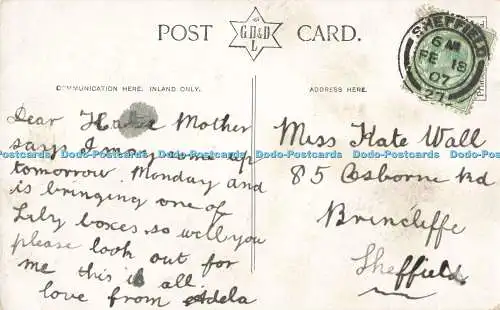 POST CARD.
G.D.&D
L
SHEFFIELD
6 AM
FE 18
07
27
COMMUNICATION HERE. INLAND ONLY.
ADDRESS HERE.
Dear Mother
says I may come up
tomorrow Monday and
is bringing one of
Lily boxes so will you
please look out for
me this is all.
love from Adela
Miss Kate Wall
85 Osborne Rd
Brincliffe
Sheffield.
Dodo-Postcards Dodo-Postcards Dodo-Postcards Dodo-Postcards Dodo-Postcards